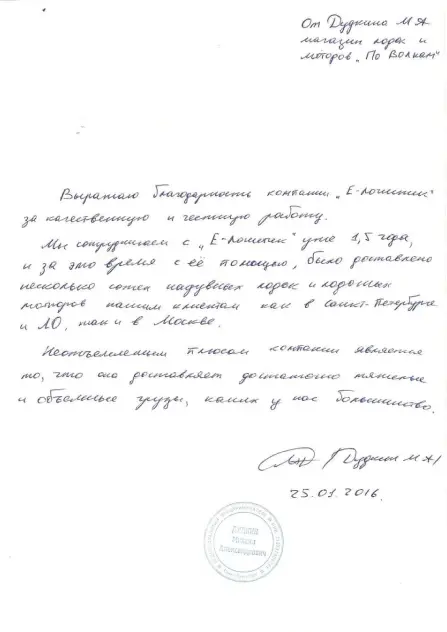 От Дудкина М А
магазин лодок и
моторов „По Волнам"
Выражаю благодарность компании „Е-Логистик"
за качественную и честную работу.
Мы сотрудничаем с „Е-Логистик" уже 1,5 года,
и за это время с её помощью, было доставлено
несколько сотен надувных лодок и лодочных
моторов нашим клиентам как в Санкт-Петербурге
и ЛО, так и в Москве.
Неотъемлемым плюсом компании является
то, что она доставляет достаточно тяжелые
и объемные грузы, каких у нас большинство.
Дудкин М А/
25.01.2016.
ДУДКИН
Михаил
Александрович